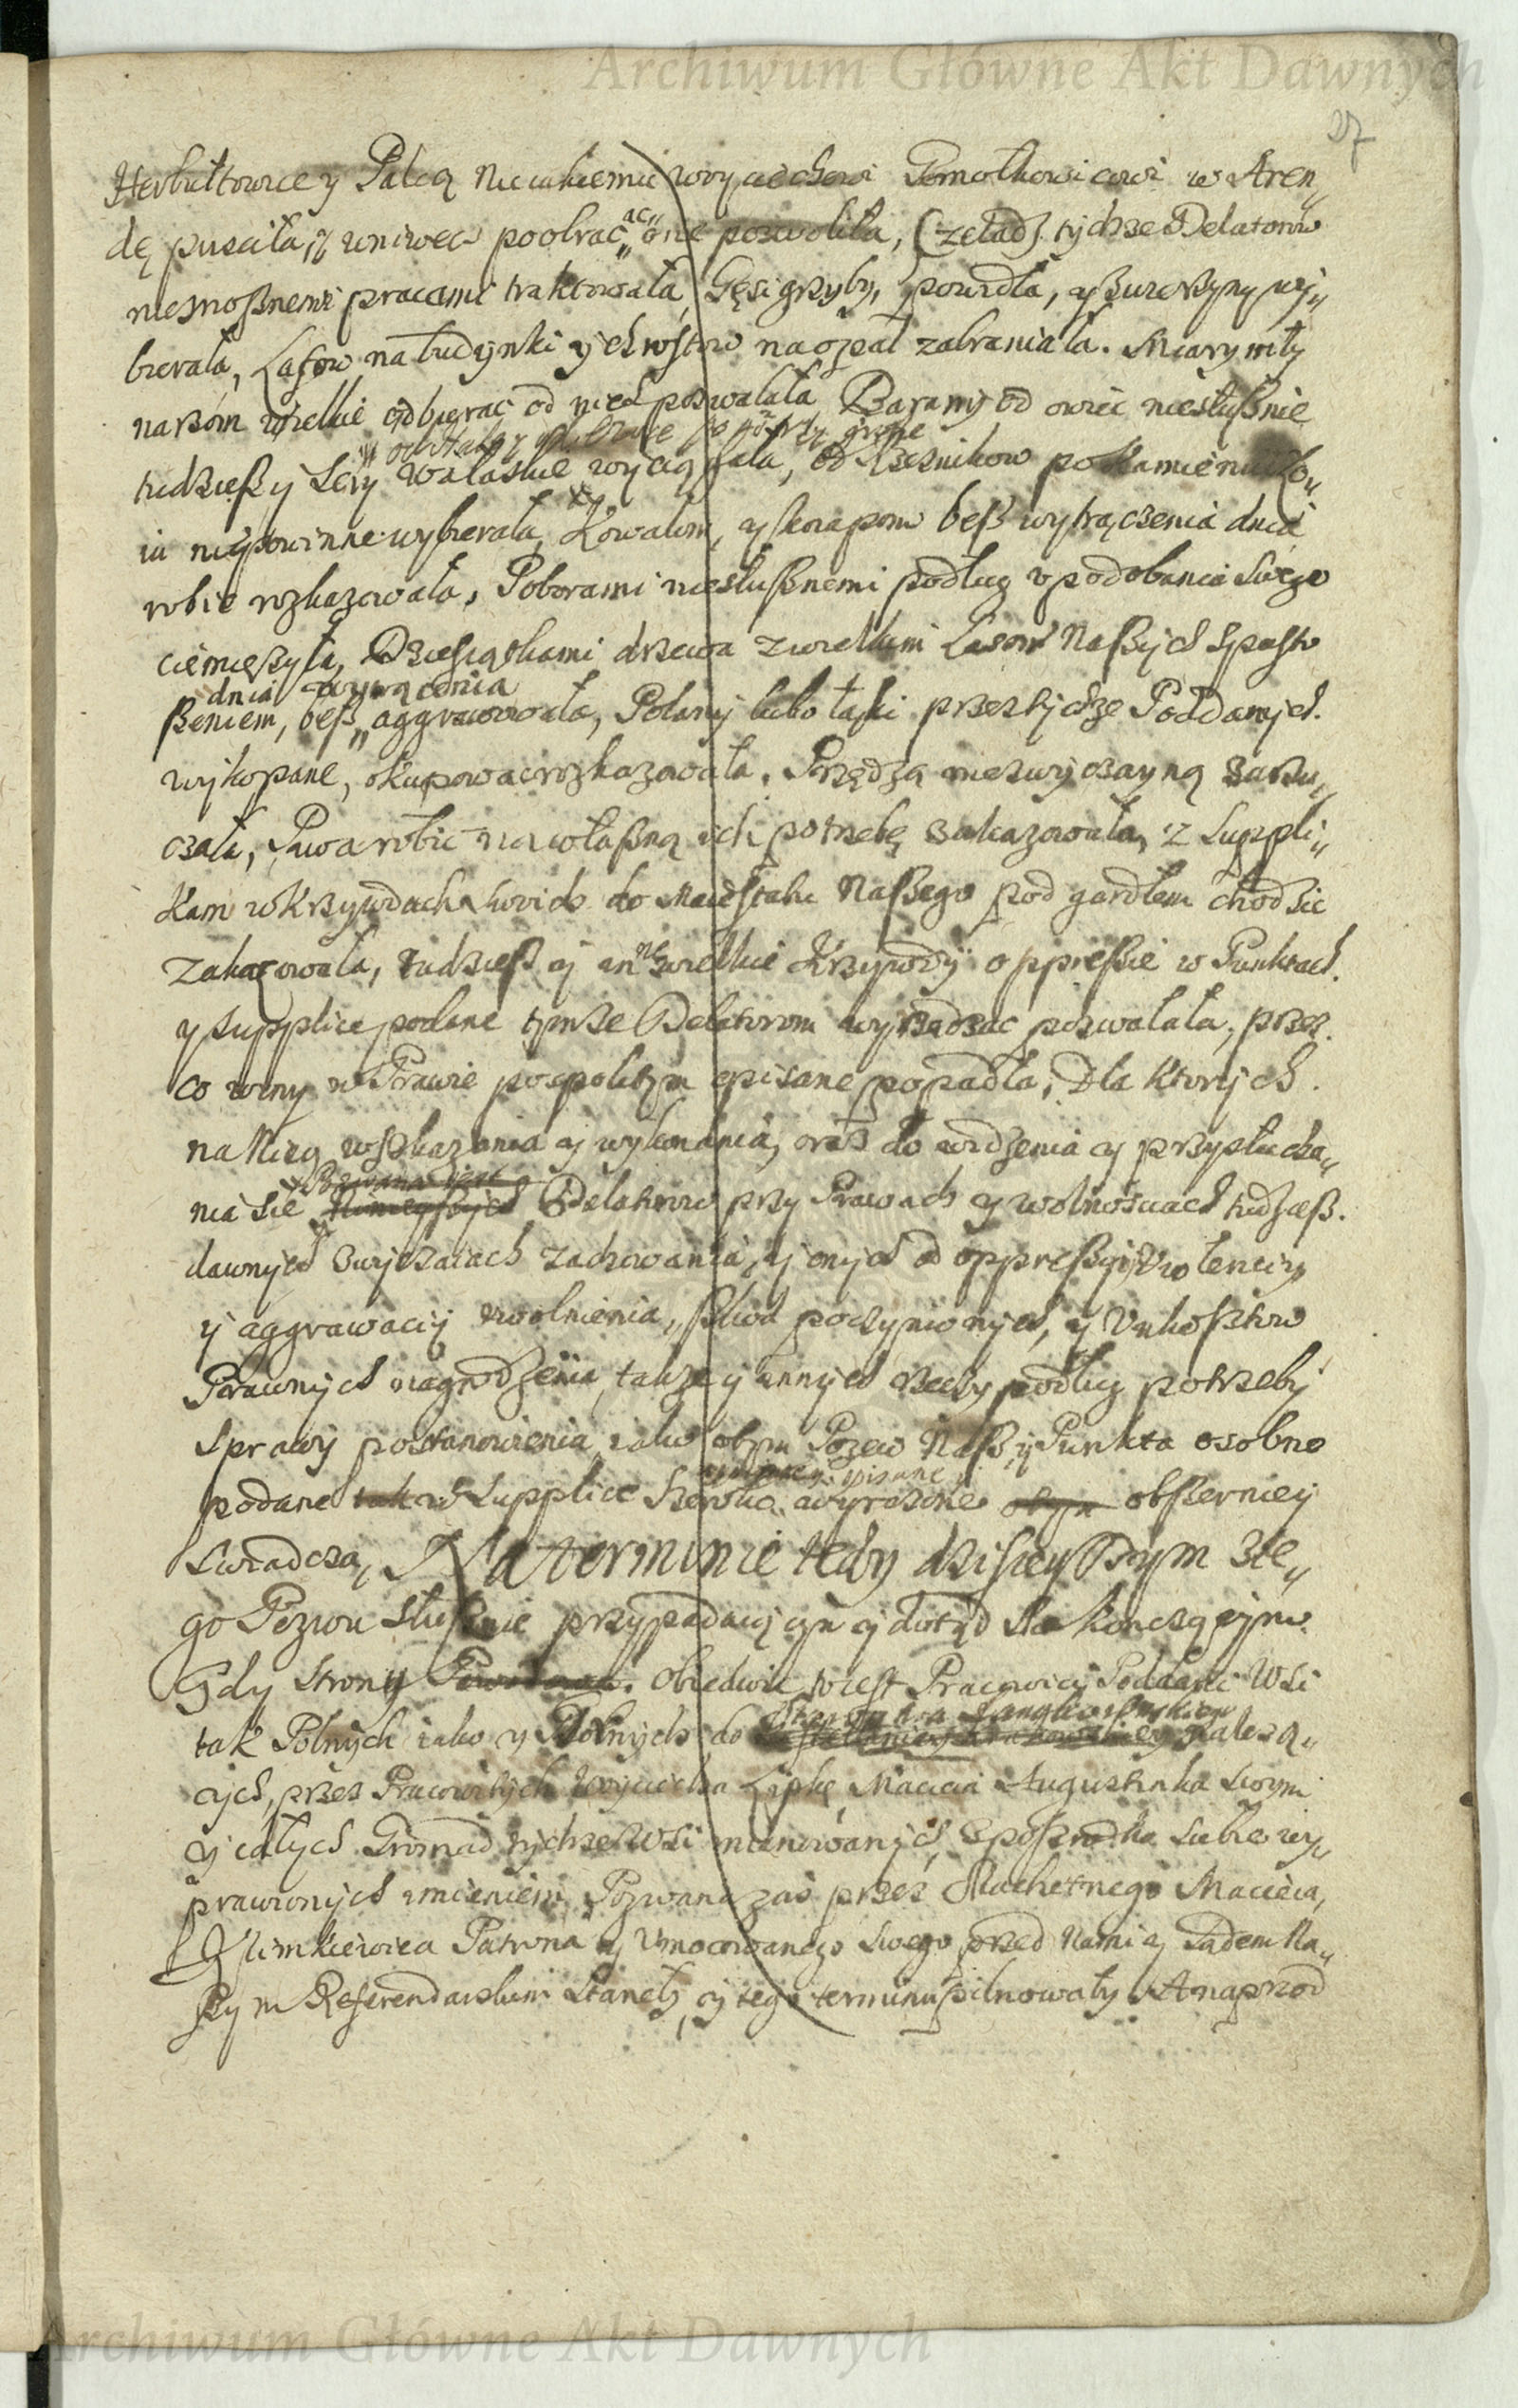 Archiwum Główne Akt Dawnych
27
Herbułtowice y Palcą nieiakiemu woyciechowi Gomołkowicowi w Aren„
dę puściła, y wniwecz poobracać one pozwoliła, Czeladź tychze Delatorow
nieznoßnemi pracami traktowała, Gęsi grzyby, powidła, y
bierała, Lasow na budynki y chrostow na opał zabraniała. Miary mły
narzom wielkie odbierać od nich pozwalała Barany od owiec niesłußnie
po große
tudzieß y Sery wałaskie wyciągała, od Rzeznikow po kamieniu Ło„
iu niepowinne wybierała, Kowalom, y beß wytrączenia dnia
robic rozkazowała, Poborami niesłußnemi podług vpodobania Swego
ciemiężyła, drzewa z wielkim Lasow Naßych Spusto
dnia wytrącenia
ßeniem, beß aggrawowała, Polany lubo łąki przez tychze Poddanych
wykopane, okupowac rozkazowała. Przędzą niezwyczayną zarzu„
czała, Piwa robic na własną ich potrzebę zakazowała, z Suppli„
kami w Krzywdach swoich do Maiestatu Naßego pod gardłem chodzic
zakazowała, tudzieß y inne wielkie Krzywdy oppreßie w Punktach
y supplice podane tymze Delatorom wyrządzac pozwalała, przez
co winy w Prawie pospolitym opisane popadła, Dla ktorych
na Nieg wskazania y wykonania, oraz do widzenia y przysłucha„
nia sie Delatorow przy Prawach y wolnosciach tudzieß
dawnych zwyczaiach zachowania, y onych od oppreßiy, violenciy
y aggrawaciy uwolnienia, ßkod poczynionych, y Vnkosztow
Prawnych nagrodzenia, takze y innych rzeczy podług potrzeby
Sprawy postanowienia, iako o tym Pozew Naß y Punkta osobno
opisane
podane Supplice Szeroko wyrazone obßerniey
Swiadczą, Na terminie tedy dzisieyßym z te„
go Pozwu Słußnie przypadaiącym y dotąd
Gdy Strony Obiedwie, to iest Pracowici Poddani Wsi
tak Polnych iako y do nalezą„
cych, przez Pracowitych Woyciecha Lipkę, Macieia Augustinka Swym
y całych Gromad tychze Wsi mianowanych, z poßrodka Siebie wy„
prawionych imieniem, Pozwana zas przez Slachetnego Macieia
Klimkiewica Patrona y Vmocowanego Swego przed Nami y Sądem Na„
ßym Referendarskim Stanęły, y tego terminu pilnowały. A naprzod
Archiwum Główne Akt Dawnych